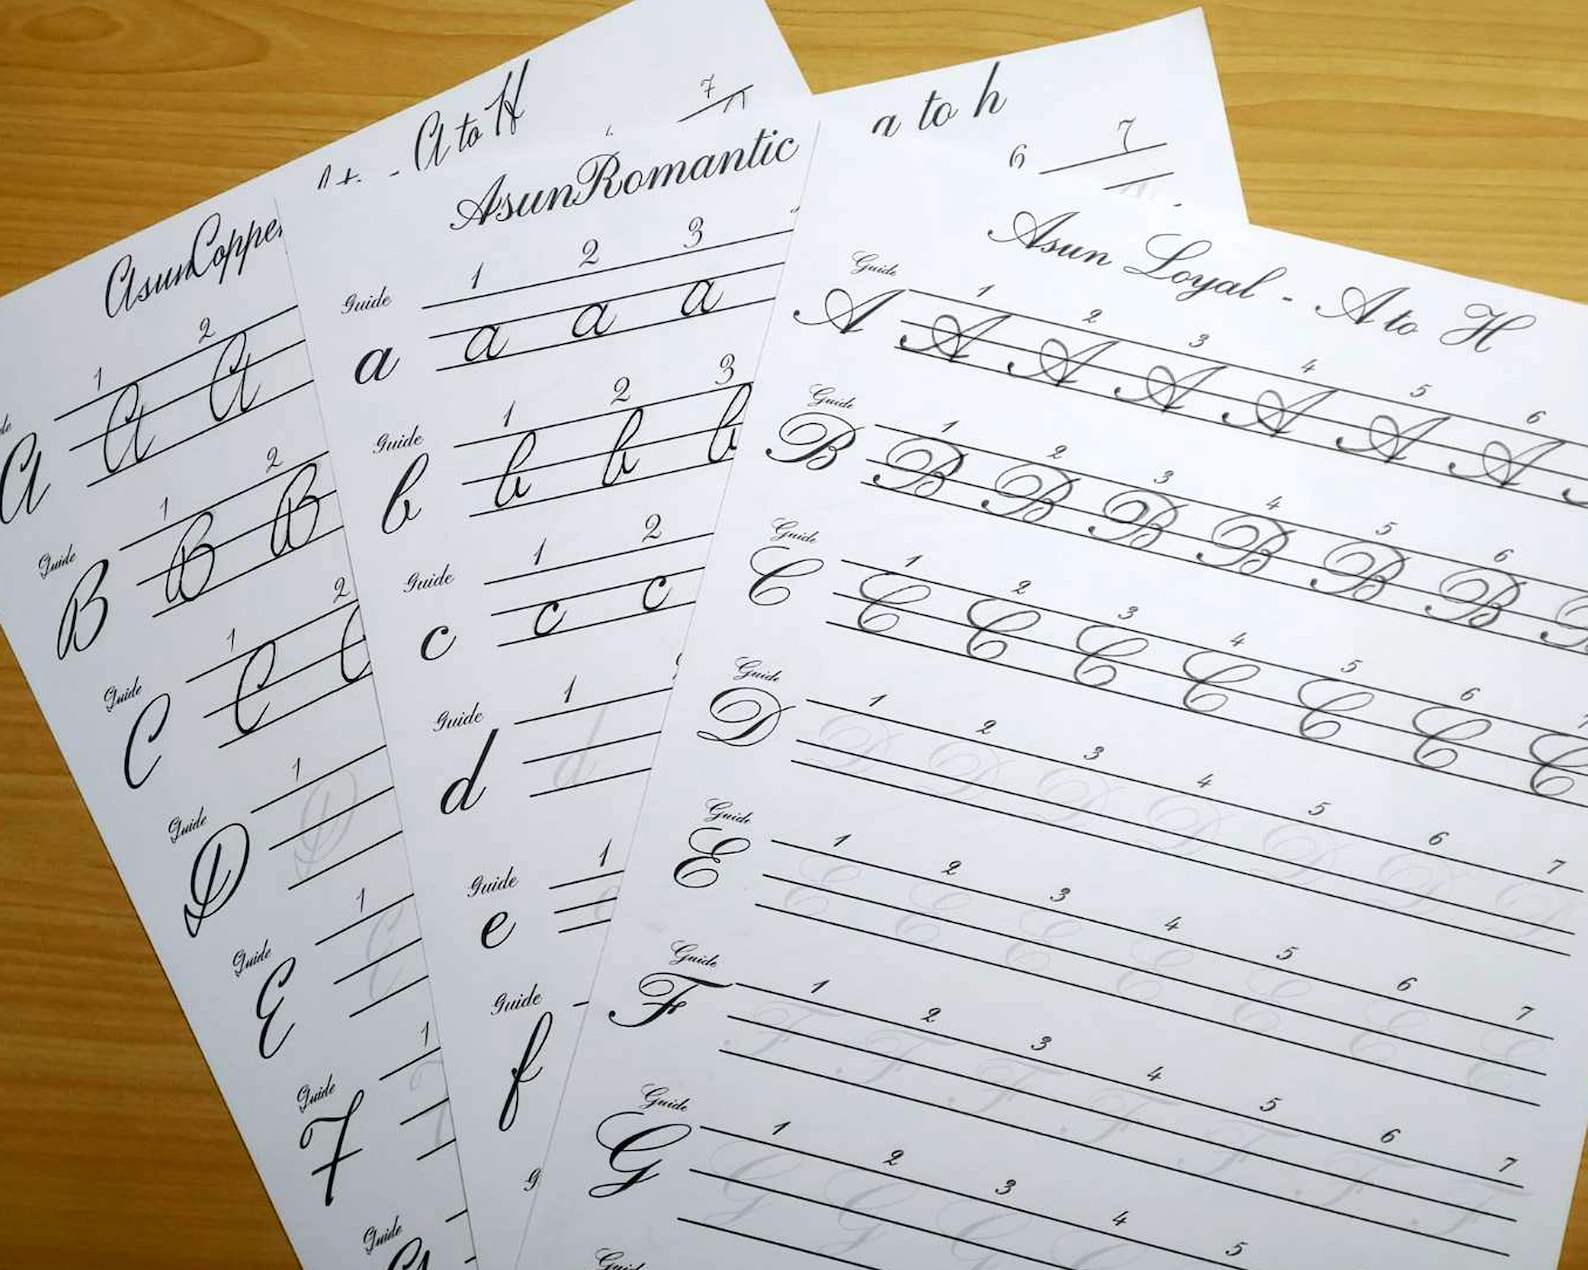 A to H
7
AsunCopper
Guide
1 2
A A A
Guide
1 2
B B B
Guide
1 2
C C C
Guide
1
D D
Guide
1
E E
Guide
1
F F
Guide
a to h
6 7
AsunRomantic
Guide
1 2 3
a a a a
Guide
1 2 3
b b b b
Guide
1 2
c c c
Guide
1
d d
Guide
1
e e
Guide
f
g
Asun Loyal - A to H
Guide
1 2 3 4 5 6
A A A A A A A
Guide
1 2 3 4 5 6
B B B B B B B B
Guide
1 2 3 4 5 6
C C C C C C C C
Guide
1 2 3 4 5 6 7
D D D D D D D D
Guide
1 2 3 4 5 6 7
E E E E E E E E
Guide
1 2 3 4 5 6 7
F F F F F F F F
Guide
1 2 3 4 5
G G G G G
Guide